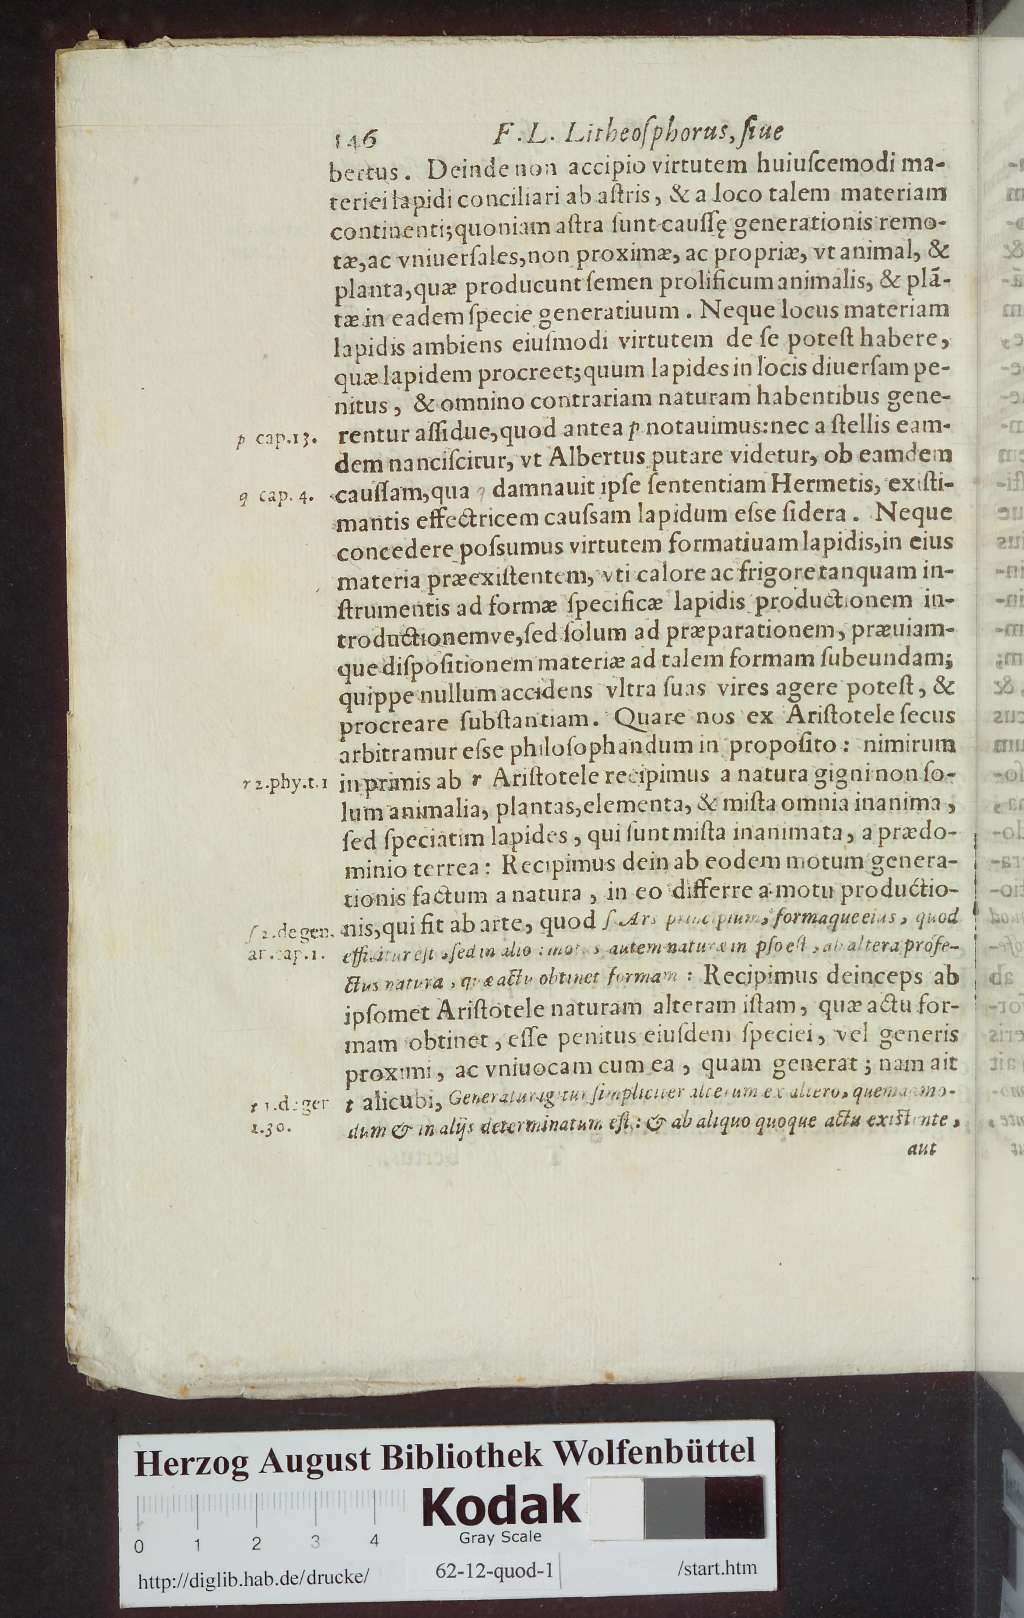 146 F. L. Litheoſphorus, ſiue
bertus. Deinde non accipio virtutem huiuſcemodi ma-
teriei lapidi conciliari ab aſtris, & a loco talem materiam
continenti; quoniam aſtra ſunt cauſſę generationis remo-
tæ, ac vniuerſales, non proximæ, ac propriæ, vt animal, &
planta, quæ producunt ſemen prolificum animalis, & plā-
tæ in eadem ſpecie generatiuum. Neque locus materiam
lapidis ambiens eiuſmodi virtutem de ſe poteſt habere,
quæ lapidem procreet; quum lapides in locis diuerſam pe-
nitus, & omnino contrariam naturam habentibus gene-
p cap.13. rentur aſſidue, quod antea p notauimus: nec a ſtellis eam-
dem nanciſcitur, vt Albertus putare videtur, ob eamdem
q cap. 4. cauſſam, qua q damnauit ipſe ſententiam Hermetis, exiſti-
mantis effectricem cauſsam lapidum eſse ſidera. Neque
concedere poſsumus virtutem formatiuam lapidis, in eius
materia præexiſtentem, vti calore ac frigore tanquam in-
ſtrumentis ad formæ ſpecificæ lapidis productionem in-
troductionemve, ſed ſolum ad præparationem, præuiam-
que diſpoſitionem materiæ ad talem formam ſubeundam;
quippe nullum accidens vltra ſuas vires agere poteſt, &
procreare ſubſtantiam. Quare nos ex Ariſtotele ſecus
arbitramur eſse philoſophandum in propoſito: nimirum
r 2.phy.t.1 in primis ab r Ariſtotele recipimus a natura gigni non ſo-
lum animalia, plantas, elementa, & miſta omnia inanima,
ſed ſpeciatim lapides, qui ſunt miſta inanimata, a prædo-
minio terrea: Recipimus dein ab eodem motum genera-
tionis factum a natura, in eo differre a motu productio-
ſ 2.de gen. nis, qui fit ab arte, quod ſ Ars principium, formaque eius, quod
an.cap.1. efficitur eſt, ſed in alio: motus autem naturæ in ipſo eſt, ab altera profe-
ctus natura, quæ actu obtinet formam: Recipimus deinceps ab
ipſomet Ariſtotele naturam alteram iſtam, quæ actu for-
mam obtinet, eſſe penitus eiuſdem ſpeciei, vel generis
proximi, ac vniuocam cum ea, quam generat; nam ait
t 1.de ger t alicubi, Generatur igitur ſimpliciter alterum ex altero, quemadmo-
t.30. dum & in alijs determinatum eſt: & ab aliquo quoque actu exiſtente,
aut
Herzog August Bibliothek Wolfenbüttel
Kodak
Gray Scale
0 1 2 3 4
http://diglib.hab.de/drucke/ 62-12-quod-1 /start.htm